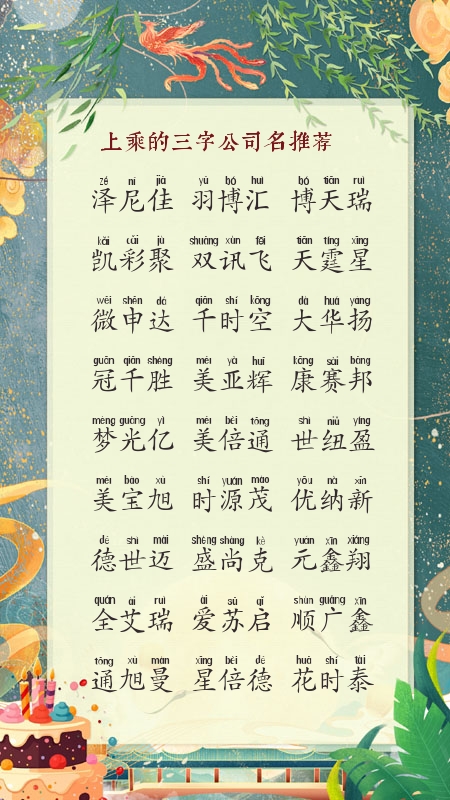 上乘的三字公司名推荐
zé ní jiā yǔ bó huì bó tiān ruì
泽尼佳 羽博汇 博天瑞
kǎi cǎi jù shuāng xùn fēi tiān tíng xīng
凯彩聚 双讯飞 天霆星
wēi shēn dá qiān shí kōng dà huá yáng
微申达 千时空 大华扬
guān qiān shèng měi yà huī kāng sài bāng
冠千胜 美亚辉 康赛邦
mèng guāng yì měi bèi tōng shì niǔ yíng
梦光亿 美倍通 世纽盈
měi bǎo xù shí yuán mào yōu nà xīn
美宝旭 时源茂 优纳新
dé shì mài shèng shàng kè yuán xīn xiáng
德世迈 盛尚克 元鑫翔
quán ài ruì ài sū qǐ shùn guǎng xīn
全艾瑞 爱苏启 顺广鑫
tōng xù màn xīng bèi dé huā shí tài
通旭曼 星倍德 花时泰